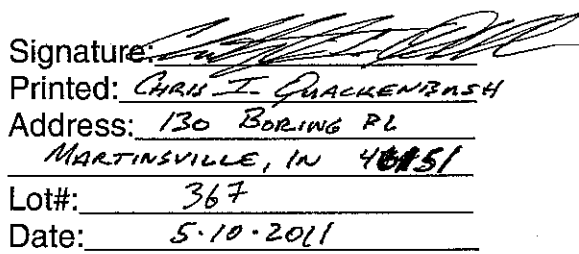 Signature:
Printed: CHRIS I QUACKENBUSH
Address: 130 BORING PL
MARTINSVILLE, IN 46151
Lot#: 367
Date: 5.10.2011